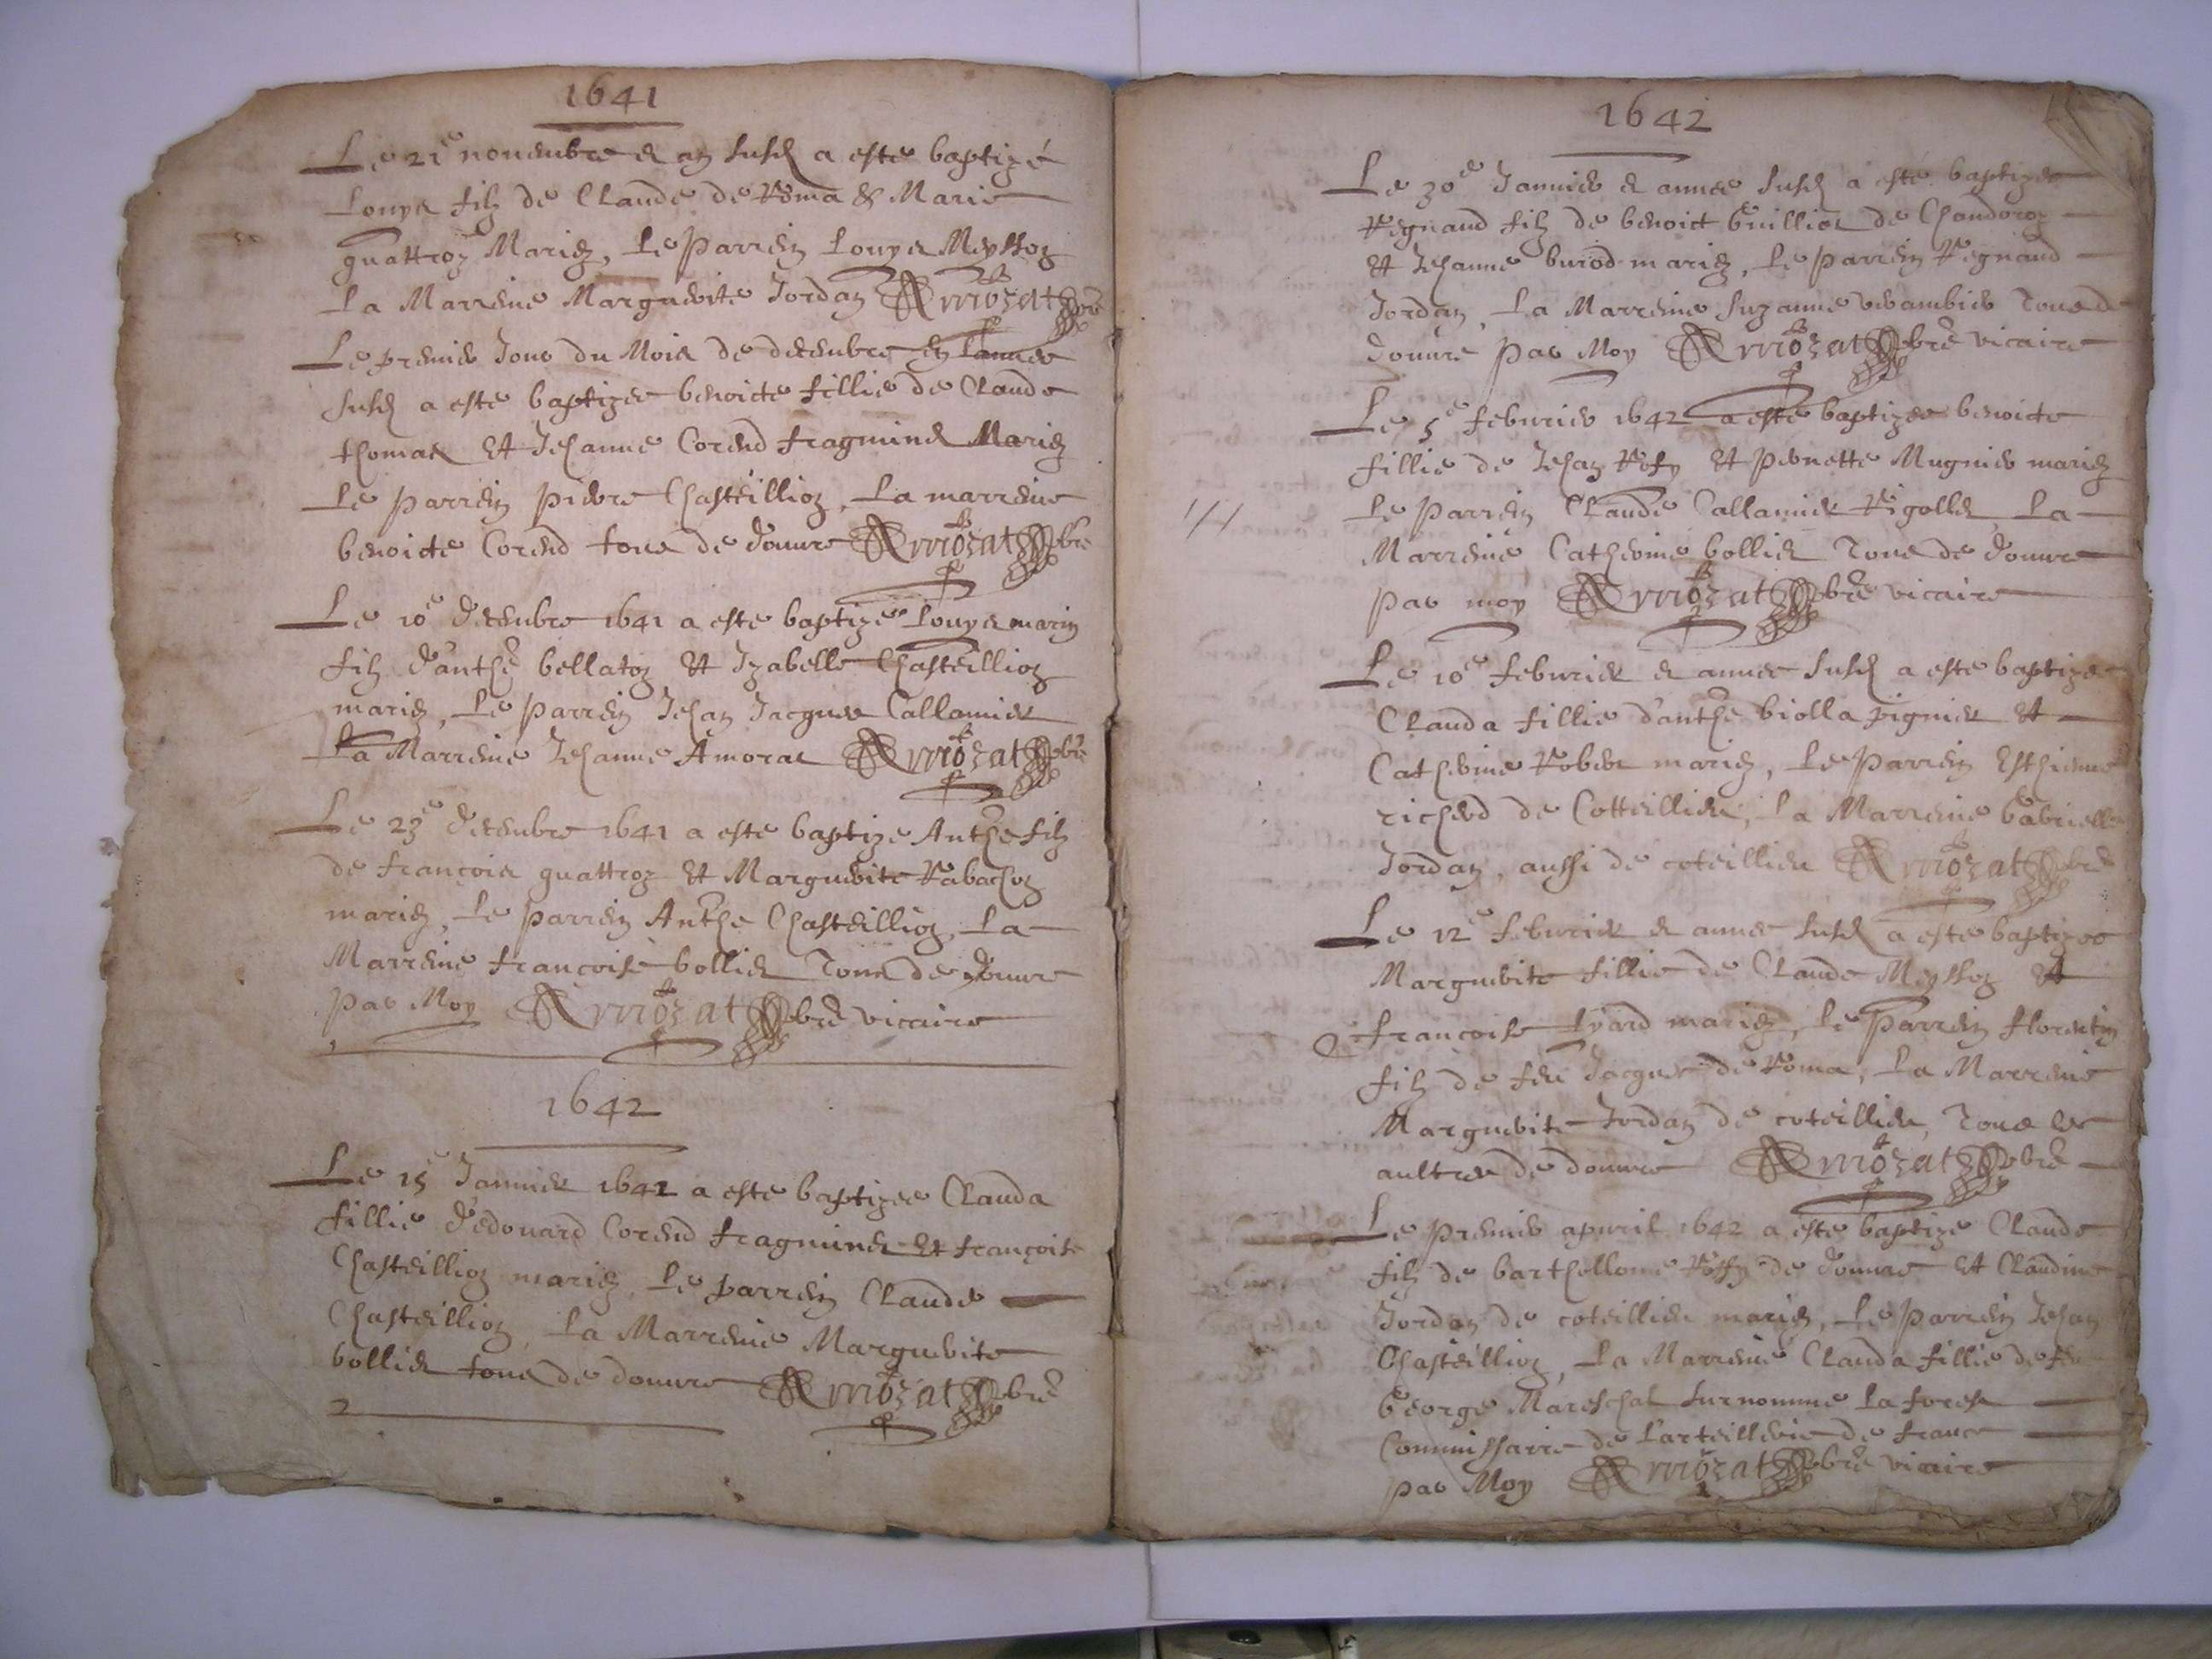 1641
Le 21e novembre & an susd a este baptizé
Louys filz de Claude de Roma & Marie
quattroz Mariez, Le Parrein Louys Meyssoz
La Marreine Marguerite Jordaz Arriozat pbre
Le premier Jour du Mois de decembre en Lannee
susd a este baptizee benoicte fillie de Claude
thomas Et Jehanne Corend fragmind Mariez
Le Parrein pierre Chasteillioz, La marreine
benoicte Corend tous de douvre Arriozat pbre
Le 10e decembre 1641 a este baptizé Louys marin
filz d'anthe bellatoz Et Izabelle Chasteillioz
mariez, Le Parrein Jehaz Jacques Callamier
La Marreine Jehanne Amorat Arriozat pbre
Le 23e decembre 1641 a este baptize Anthe filz
de françois quattroz Et Marguerite Rabachoz
mariez, Le parrein Anthe Chasteillioz, La
Marreine francoise bollier Tous de douvre
par Moy Arriozat pbre vicaire
1642
Le 15e Janvier 1642 a este baptizee Clauda
fillie d'Edouard Corend fragmind Et françoise
Chasteillioz mariez, Le parrein Claude
Chasteillioz, La Marreine Marguerite
bollier tous de douvre Arriozat pbre
1642
Le 30e Janvier & annee susd a esté baptize
Regnaud filz de benoict Guillier de Chandoroz
Et Jehanne burod mariez, Le parrein Regnaud
Jordaz, La Marreine Suzanne Tous de
douvre par Moy Arriozat pbre vicaire
Le 5e febvrier 1642 a este baptizee benoicte
fillie de Jehaz Rosy Et pernette Mugnier mariez
Le Parrein Claude Callamier Rigollet, La
Marreine Catherine bollier Tous de douvre
par moy Arriozat pbre vicaire
Le 10e febvrier & annee susd a este baptizee
Clauda fillie d'anthe biolla pignier Et
Catherine Rober mariez, Le Parrein Esthienne
richerd de Cotteillieu, La Marreine Gabrielle
Jordaz, aussi de coteillieu Arriozat pbre
Le 12e febvrier & annee susd a este baptizee
Marguerite fillie de Claude Meyssoz Et
francoise Lyard mariez, Le Parrein florentin
filz de feu Jacques de Roma, La Marreine
Marguerite Jordaz de coteillieu, Tous les
aultres de douvre Arriozat pbre
Le premier apvril 1642 a este baptize Claude
filz de barthellome Rossy de douvre Et Claudine
Jordaz de coteillieu mariez, Le parrein Jehaz
Chasteillioz, La Marreine Clauda fillie de feu
George Mareschal surnomme La forest
Commissaire de L'arteillerie de france
par Moy Arriozat pbre vicaire